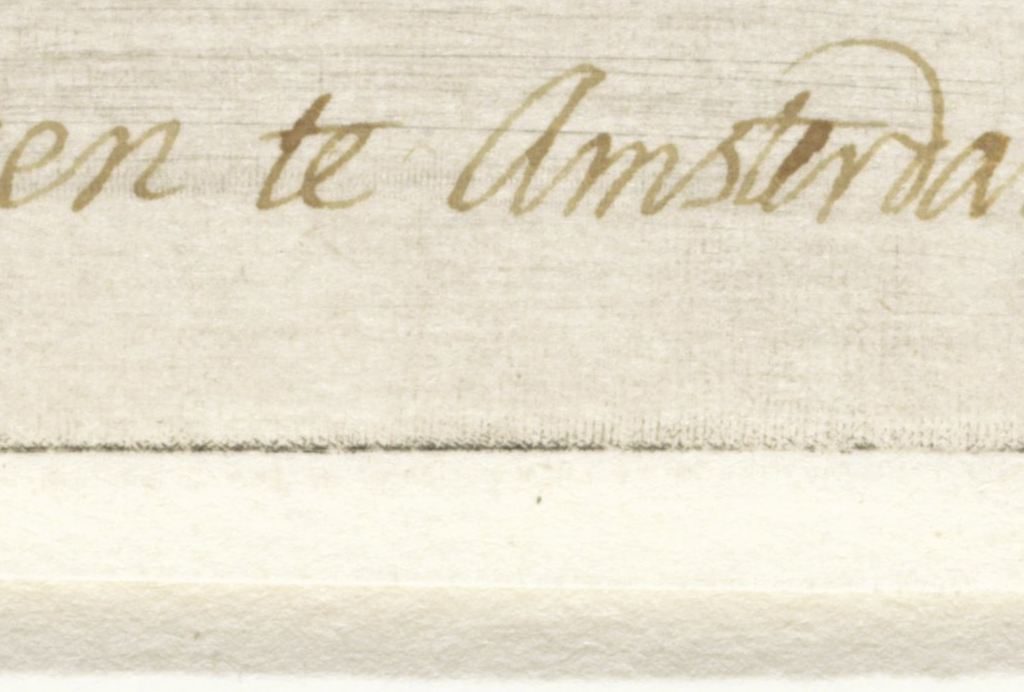 en te Amsterda